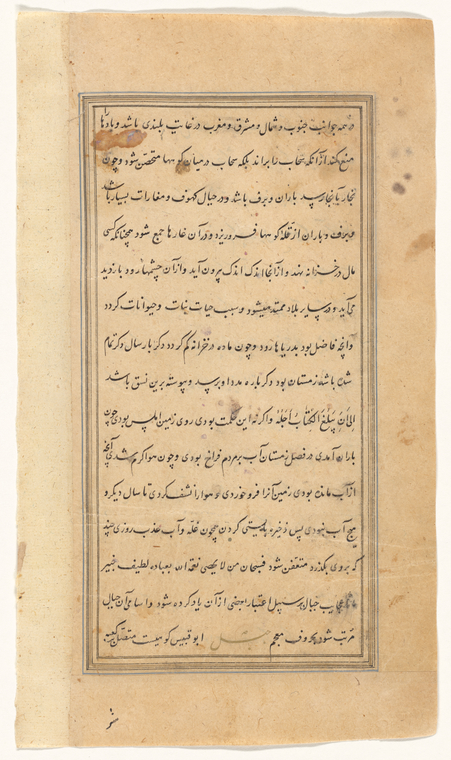 و همه جوانب جنوب و شمال و مشرق و مغرب در غایت بلندی باشد و بادها را
منع کند از آنکه سحاب را براند بلکه سحاب در میان کوهها متحصن شود و چون
بخار با بخار رسد باران و برف باشد و در جبال کهوف و مغارات بسیار باشد
و برف و باران از قلهٔ کوهها فرو ریزد و در آن غارها جمع شود همچنانکه کسی
مال در خزانه نهد و از آنجا اندک اندک بیرون آید و از آن چشمها و رود بازدید
می آید و در سایر بلاد ممتد میشود و سبب حیات نبات و حیوانات گردد
و آنچه فاضل بود بدریاها رود و چون ماده در خزانه کم گردد دگر بار سال دگر تمام
شده باشد زمستان بود دگر باره مدد او برسد و پیوسته برین نسق باشد
الی ان یبلغ الکتاب اجله و اگر نه این حکمت بودی روی زمین املس بودی چون
باران آمدی در فصل زمستان آب بر مردم فراخ بودی و چون هوا گرم شدی آنچه
از آب مانده بودی زمین آنرا فرو خوردی و هوا را نشف کردی تا سال دیگر و
هیچ آب نبودی پس ذخیره بایستی کردن همچون غله و آب عذب روزی چند
که بروی بگذرد متعفن شود فسبحان من لا یحصی نعمه انه بعباده لطیف خبیر
عجایب جبال بر سبیل اعتبار بعضی از آن یاد کرده شود و اسامی آن جبال
مرتب شود بحروف معجم جبل ابو قبیس کوهیست متصل